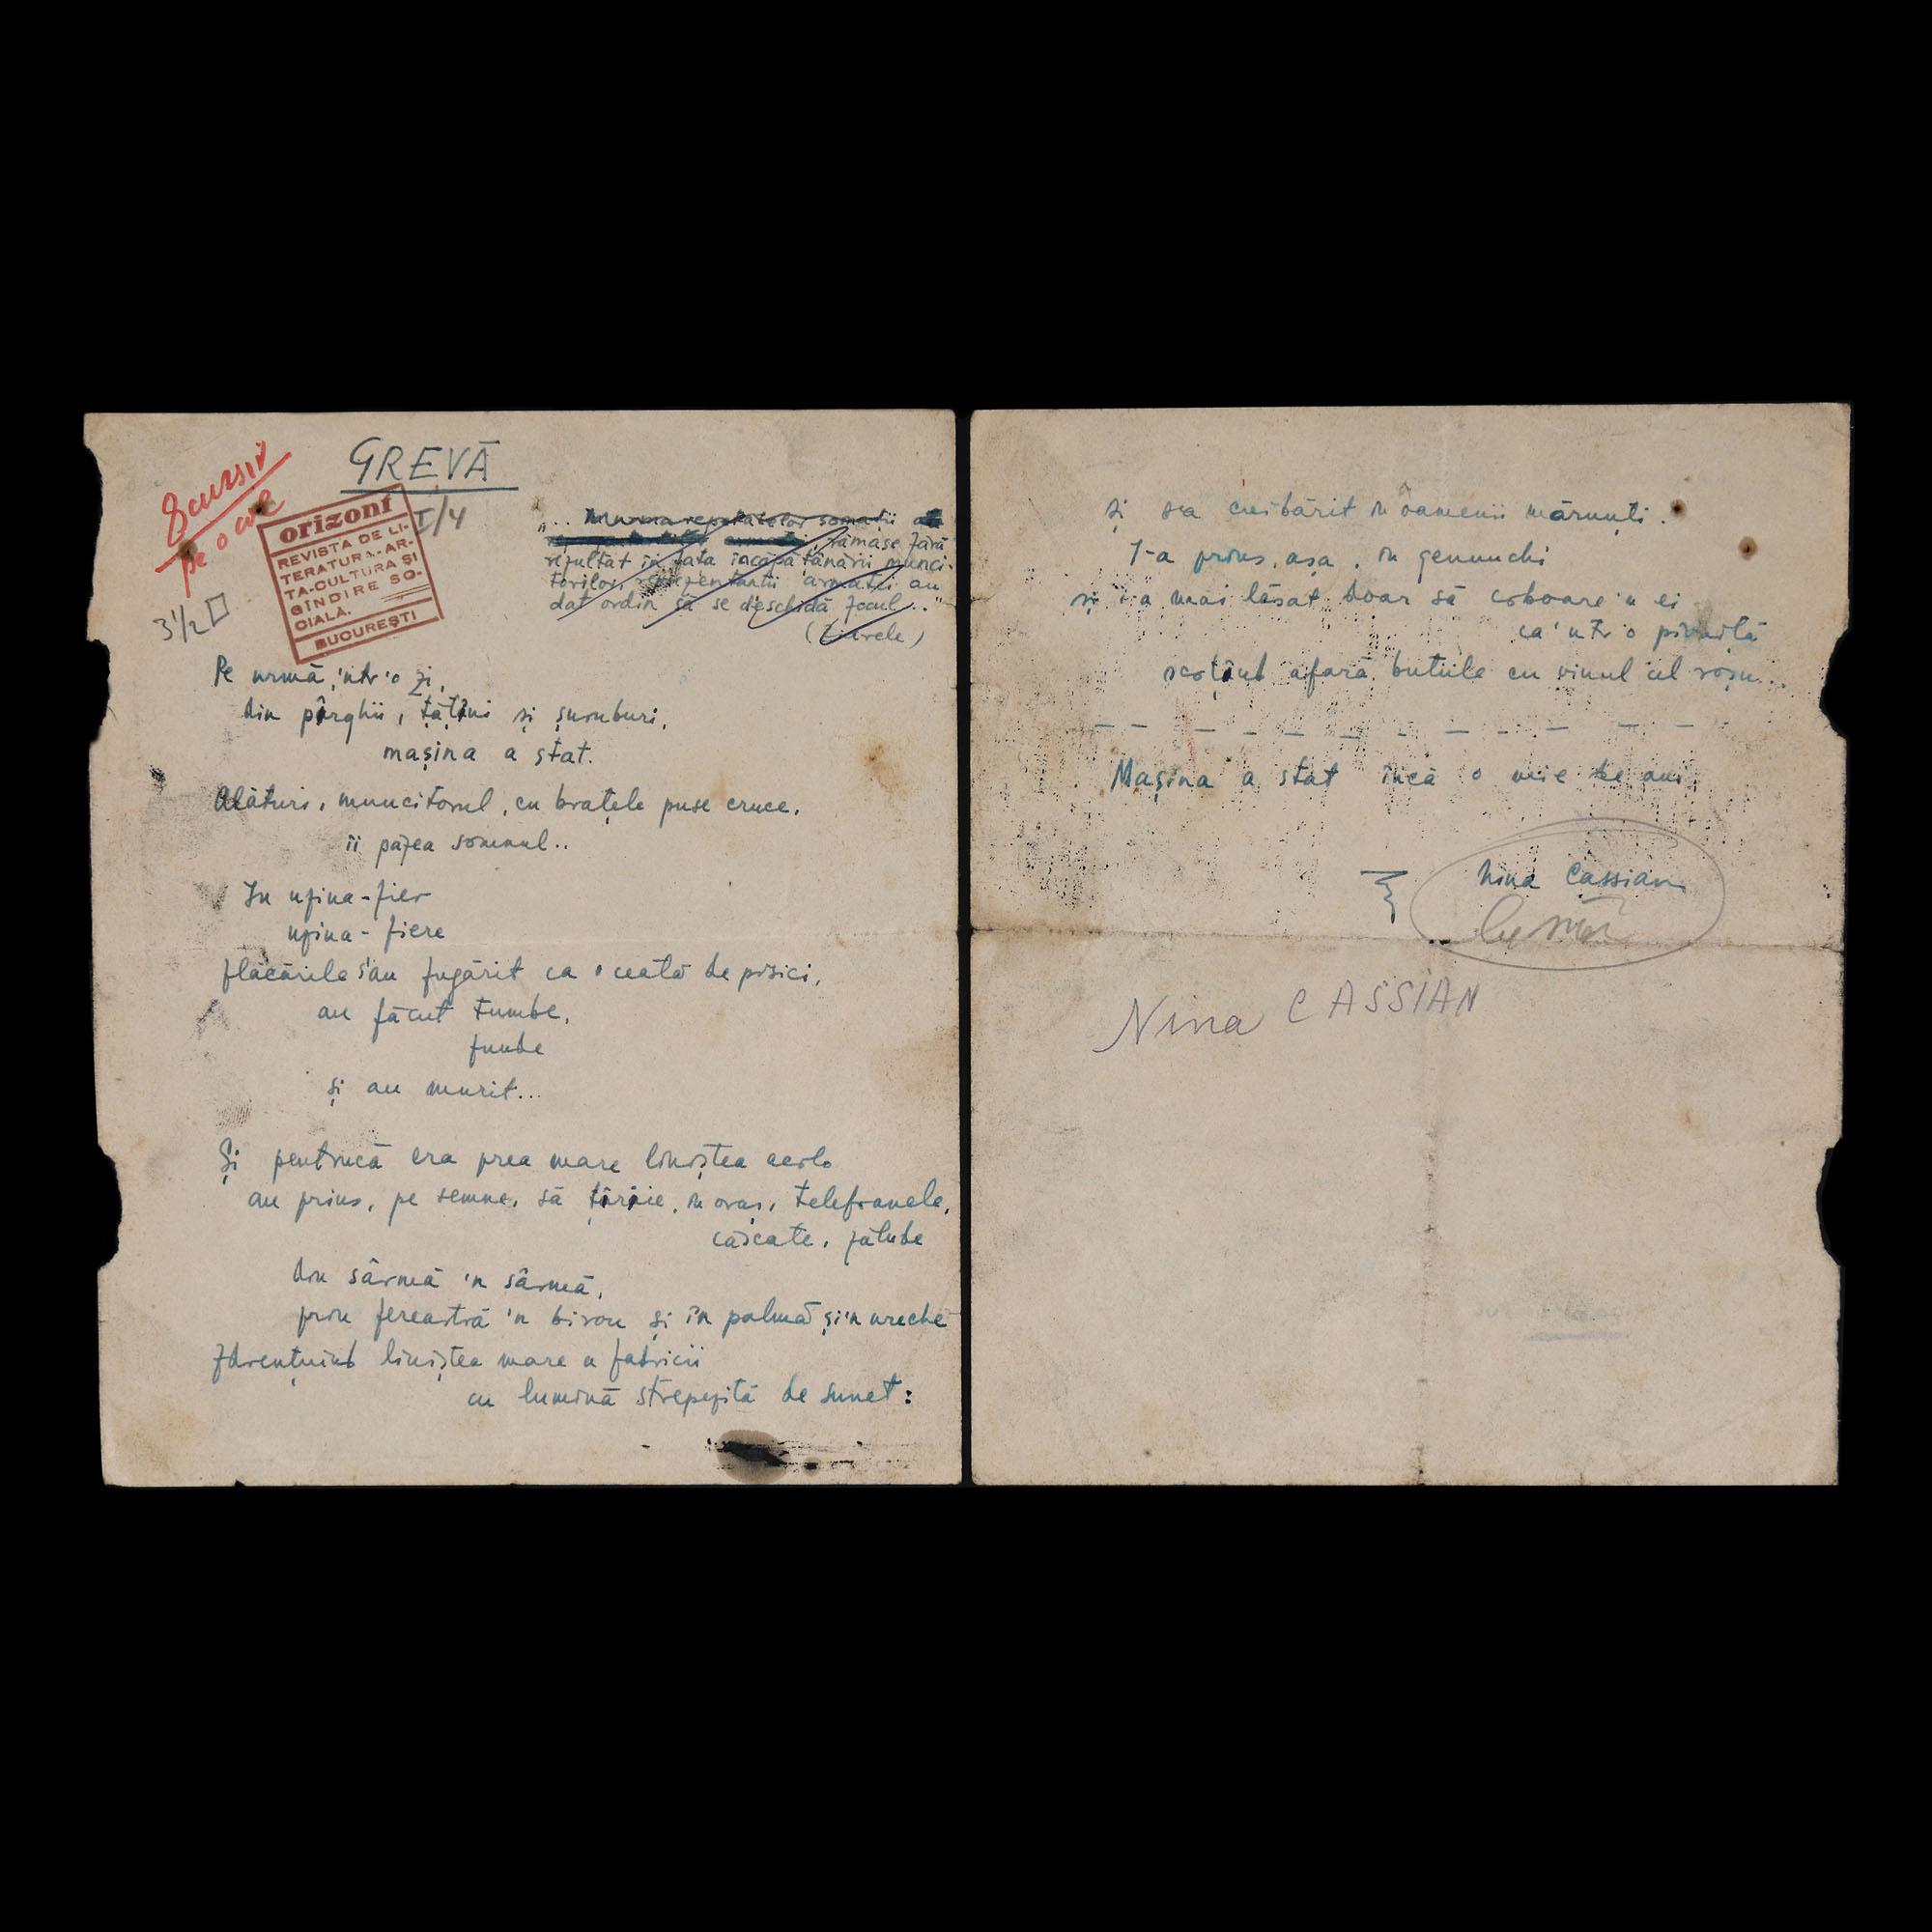 GREVĂ
8 cursiv
pe o col
I/4
3 1/2
orizont
REVISTA DE LI-
TERATURA-AR-
TA-CULTURA ȘI
GÎNDIRE SO-
CIALA.
BUCUREȘTI
„... În urma repetatelor somații
rămase fără
rezultat în fața încăpățânării munci-
torilor, reprezentanții armatei au
dat ordin să se deschidă focul..."
(Ziarele)
Pe urmă, 'ntr'o zi,
din pârghii, țâțâni și șuruburi,
mașina a stat.
Alături, muncitorul, cu brațele puse cruce,
îi păzea somnul..
In uzina-fier
uzina-fiere
flăcările s'au fugărit ca o ceată de pisici,
au făcut tumbe,
funde
și au murit...
Și pentrucă era prea mare liniștea acolo
au prins, pe semne, să țârâie, în oraș, telefoanele,
căscate, zălude
din sârmă 'n sârmă,
prin fereastră 'n birou și în palmă și 'n ureche
zdrențuind liniștea mare a fabricii
cu lumină strepezită de sunet:
și s-a cuibărit în oamenii mărunți.
I-a prins, așa, în genunchi
și i-a mai lăsat doar să coboare 'n ei
ca 'ntr'o pivniță
scoțând afară butiile cu vinul cel roșu..
Mașina a stat încă o mie de ani.
Nina Cassian
Nina CASSIAN